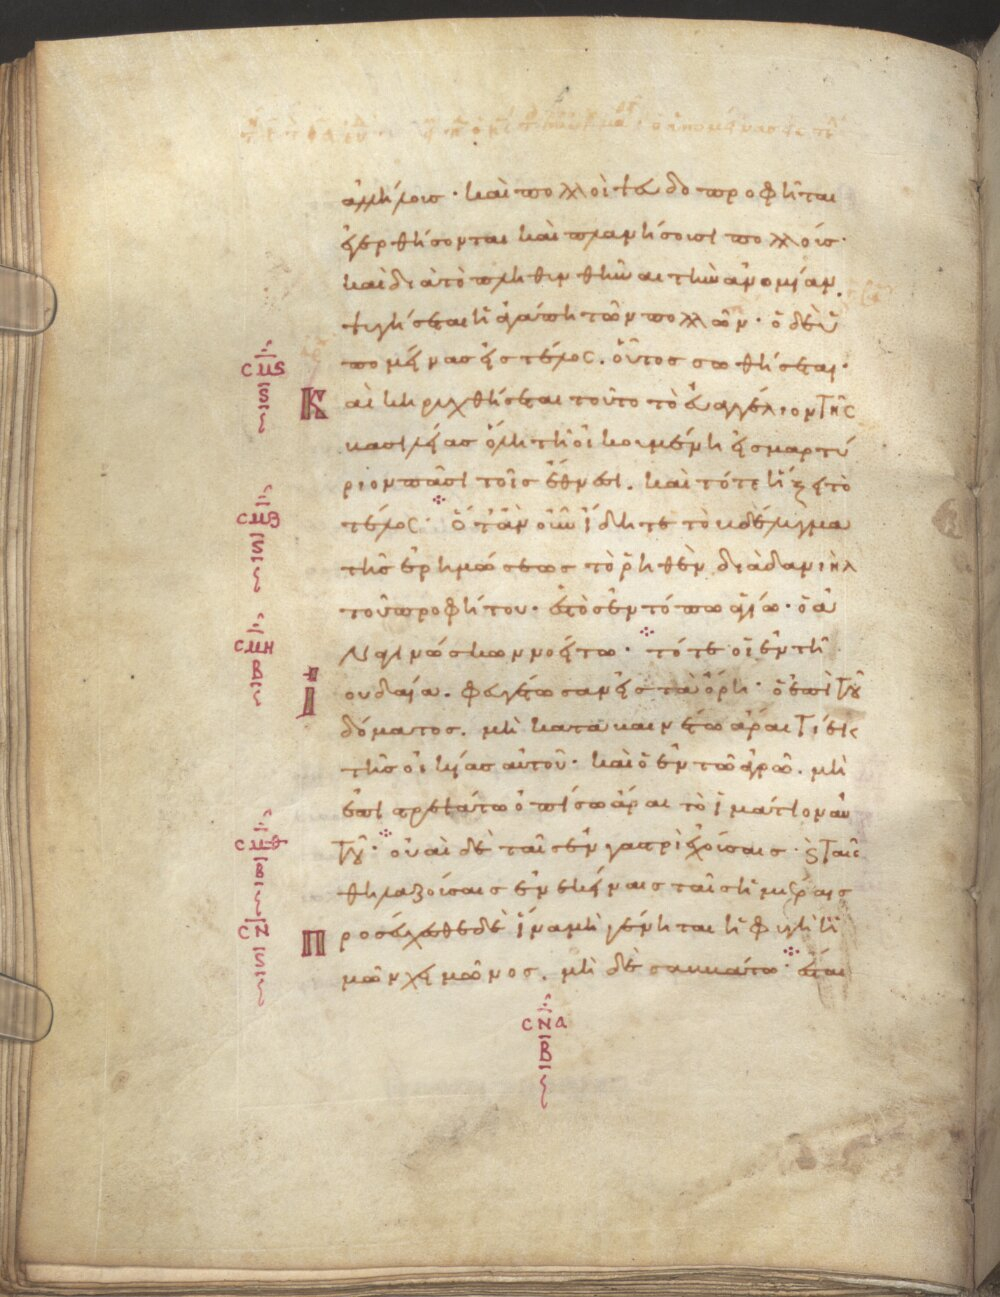 ἀλλήλοισ · καὶ πολλοὶ ψευδοπροφῆται
ἐγερθήσονται καὶ πλανήσουσι πολλούσ·
καὶ διὰ τὸ πληθυνθῆναι τὴν ἀνομίαν,
ψυγήσεται ἡ ἀγάπη τῶν πολλῶν · ὁ δὲ ὑ
πομείνασ εἰσ τέλοσ. οὗτοσ σωθήσεται·
Καὶ κηρυχθήσεται τοῦτο τὸ εὐαγγέλιον τῆσ
βασιλείασ ὅλη τῆ οἰκουμένη εἰσ μαρτύ
ριον πᾶσι τοῖσ ἔθνεσι. καὶ τότε ἥξει τὸ
τέλοσ · Ὅταν οὖν ἴδητε τὸ βδέλυγμα
τῆσ ἐρημώσεωσ τὸ ῥηθὲν διὰ δανιὴλ
τοῦ προφήτου · ἑστὸσ ἐν τόπω ἁγίω · ὁ ἀ
ναγινώσκων νοείτω · τότε οἱ ἐν τῆ
Ἰουδαία. φευγέτωσαν εἰσ τὰ ὄρη · ὁ ἐπὶ τοῦ
δόματοσ. μὴ καταβαινέτω ἆραι τί ἐκ
τῆσ οἰκίασ αὐτοῦ · καὶ ὁ ἐν τῶ ἀγρῶ. μὴ
ἐπιστρεψάτω ὀπίσω ἆραι τὸ ἱμάτιον αὐ
τοῦ · οὐαὶ δὲ ταῖσ ἐν γαστρὶ ἐχούσαισ · ϗ ταῖσ
θηλαζούσαισ ἐν ἐκείναισ ταῖσ ἡμέραισ
Προσεύχεσθε δὲ ἵνα μὴ γένηται ἡ φυγὴ ὑ
μῶν χειμῶνοσ. μὴ δὲ σαββάτω · ἔσται
σμϛ
ϛ
σμζ
ϛ
σμη
β
σμθ
β
σν
ϛ
σνα
β